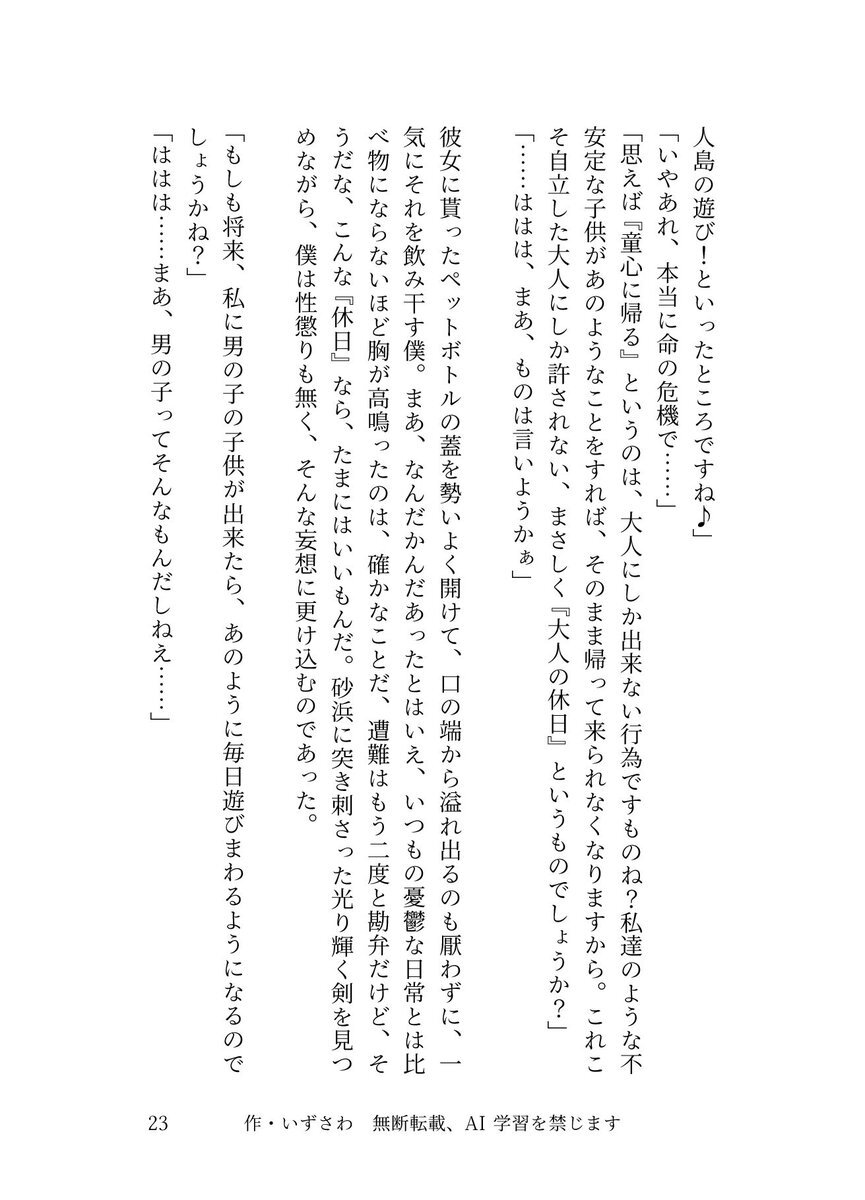 人島の遊び！といったところですね♪」
「いやあれ、本当に命の危機で……」
「思えば『童心に帰る』というのは、大人にしか出来ない行為ですものね？私達のような不
安定な子供があのようなことをすれば、そのまま帰って来られなくなりますから。これこ
そ自立した大人にしか許されない、まさしく『大人の休日』というものでしょうか？」
「……ははは、まあ、ものは言いようかぁ」
彼女に貰ったペットボトルの蓋を勢いよく開けて、口の端から溢れ出るのも厭わずに、一
気にそれを飲み干す僕。まあ、なんだかんだあったとはいえ、いつもの憂鬱な日常とは比
べ物にならないほど胸が高鳴ったのは、確かなことだ、遭難はもう二度と勘弁だけど、そ
うだな、こんな『休日』なら、たまにはいいもんだ。砂浜に突き刺さった光り輝く剣を見つ
めながら、僕は性懲りも無く、そんな妄想に更け込むのであった。
「もしも将来、私に男の子の子供が出来たら、あのように毎日遊びまわるようになるので
しょうかね？」
「ははは……まあ、男の子ってそんなもんだしねえ……」
23 作・いずさわ　無断転載、AI 学習を禁じます